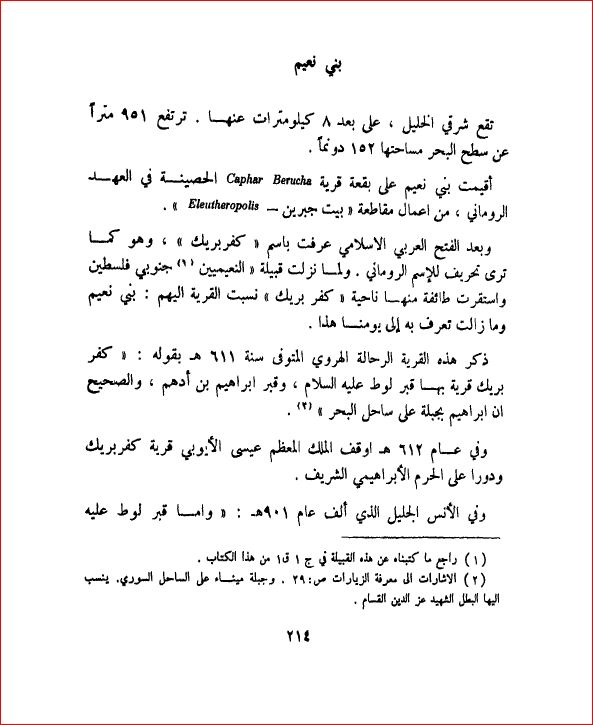 بني نعيم
تقع شرقي الخليل ، على بعد ٨ كيلومترات عنهـا . ترتفع ٩٥١ متراً
عن سطح البحر مساحتها ١٥٢ دونماً .
أقيمت بني نعيم على بقعة قرية Caphar Berucha الحصينـة في العهـد
الروماني ، من اعمال مقاطعة « بيت جبرين – Eleutheropolis » .
وبعد الفتح العربي الاسلامي عرفت باسم « كفربريك » ، وهو كمـا
ترى تحريف للإسم الروماني . ولمـا نزلت قبيلة « النعيميين (١) جنوبي فلسطين
واستقرت طائفة منهـا ناحية « كفر بريك » نسبت القرية اليهم : بني نعيم
وما زالت تعرف به إلى يومنـا هذا .
ذكر هذه القرية الرحالة الهروي المتوفى سنة ٦١١ هـ بقوله : « كفر
بريك قرية بهـا قبر لوط عليه السلام ، وقبر ابراهيم بن أدهم ، والصحيح
ان ابراهيم بجبلة على ساحل البحر » (٢) .
وفي عـام ٦١٢ هـ اوقف الملك المعظم عيسى الأيوبي قرية كفربريك
ودورا على الحرم الأبراهيمي الشريف .
وفي الأنس الجليل الذي ألف عام ٩٠١هـ : « وامـا قبر لوط عليه
(١) راجع ما كتبناه عن هذه القبيلة في ج ١ ق١ من هذا الكتاب .
(٢) الاشارات الى معرفة الزيارات ص: ٢٩ . وجبلة مينـاء على الساحل السوري. ينسب
اليها البطل الشهيد عز الدين القسام .
٢١٤